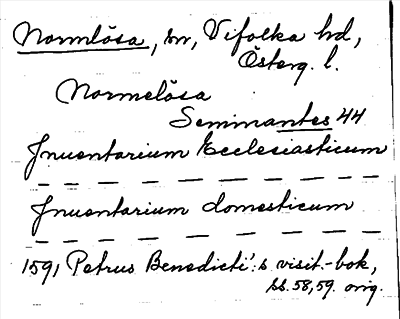 Normlösa, sn, Vifolka hd,
Österg. l.
Normelösa
Seminantes 44
Inuentarium Ecclesiasticum
Inuentarium domesticum
1591 Petrus Benedicti:s visit.-bok,
ss. 58, 59. orig.